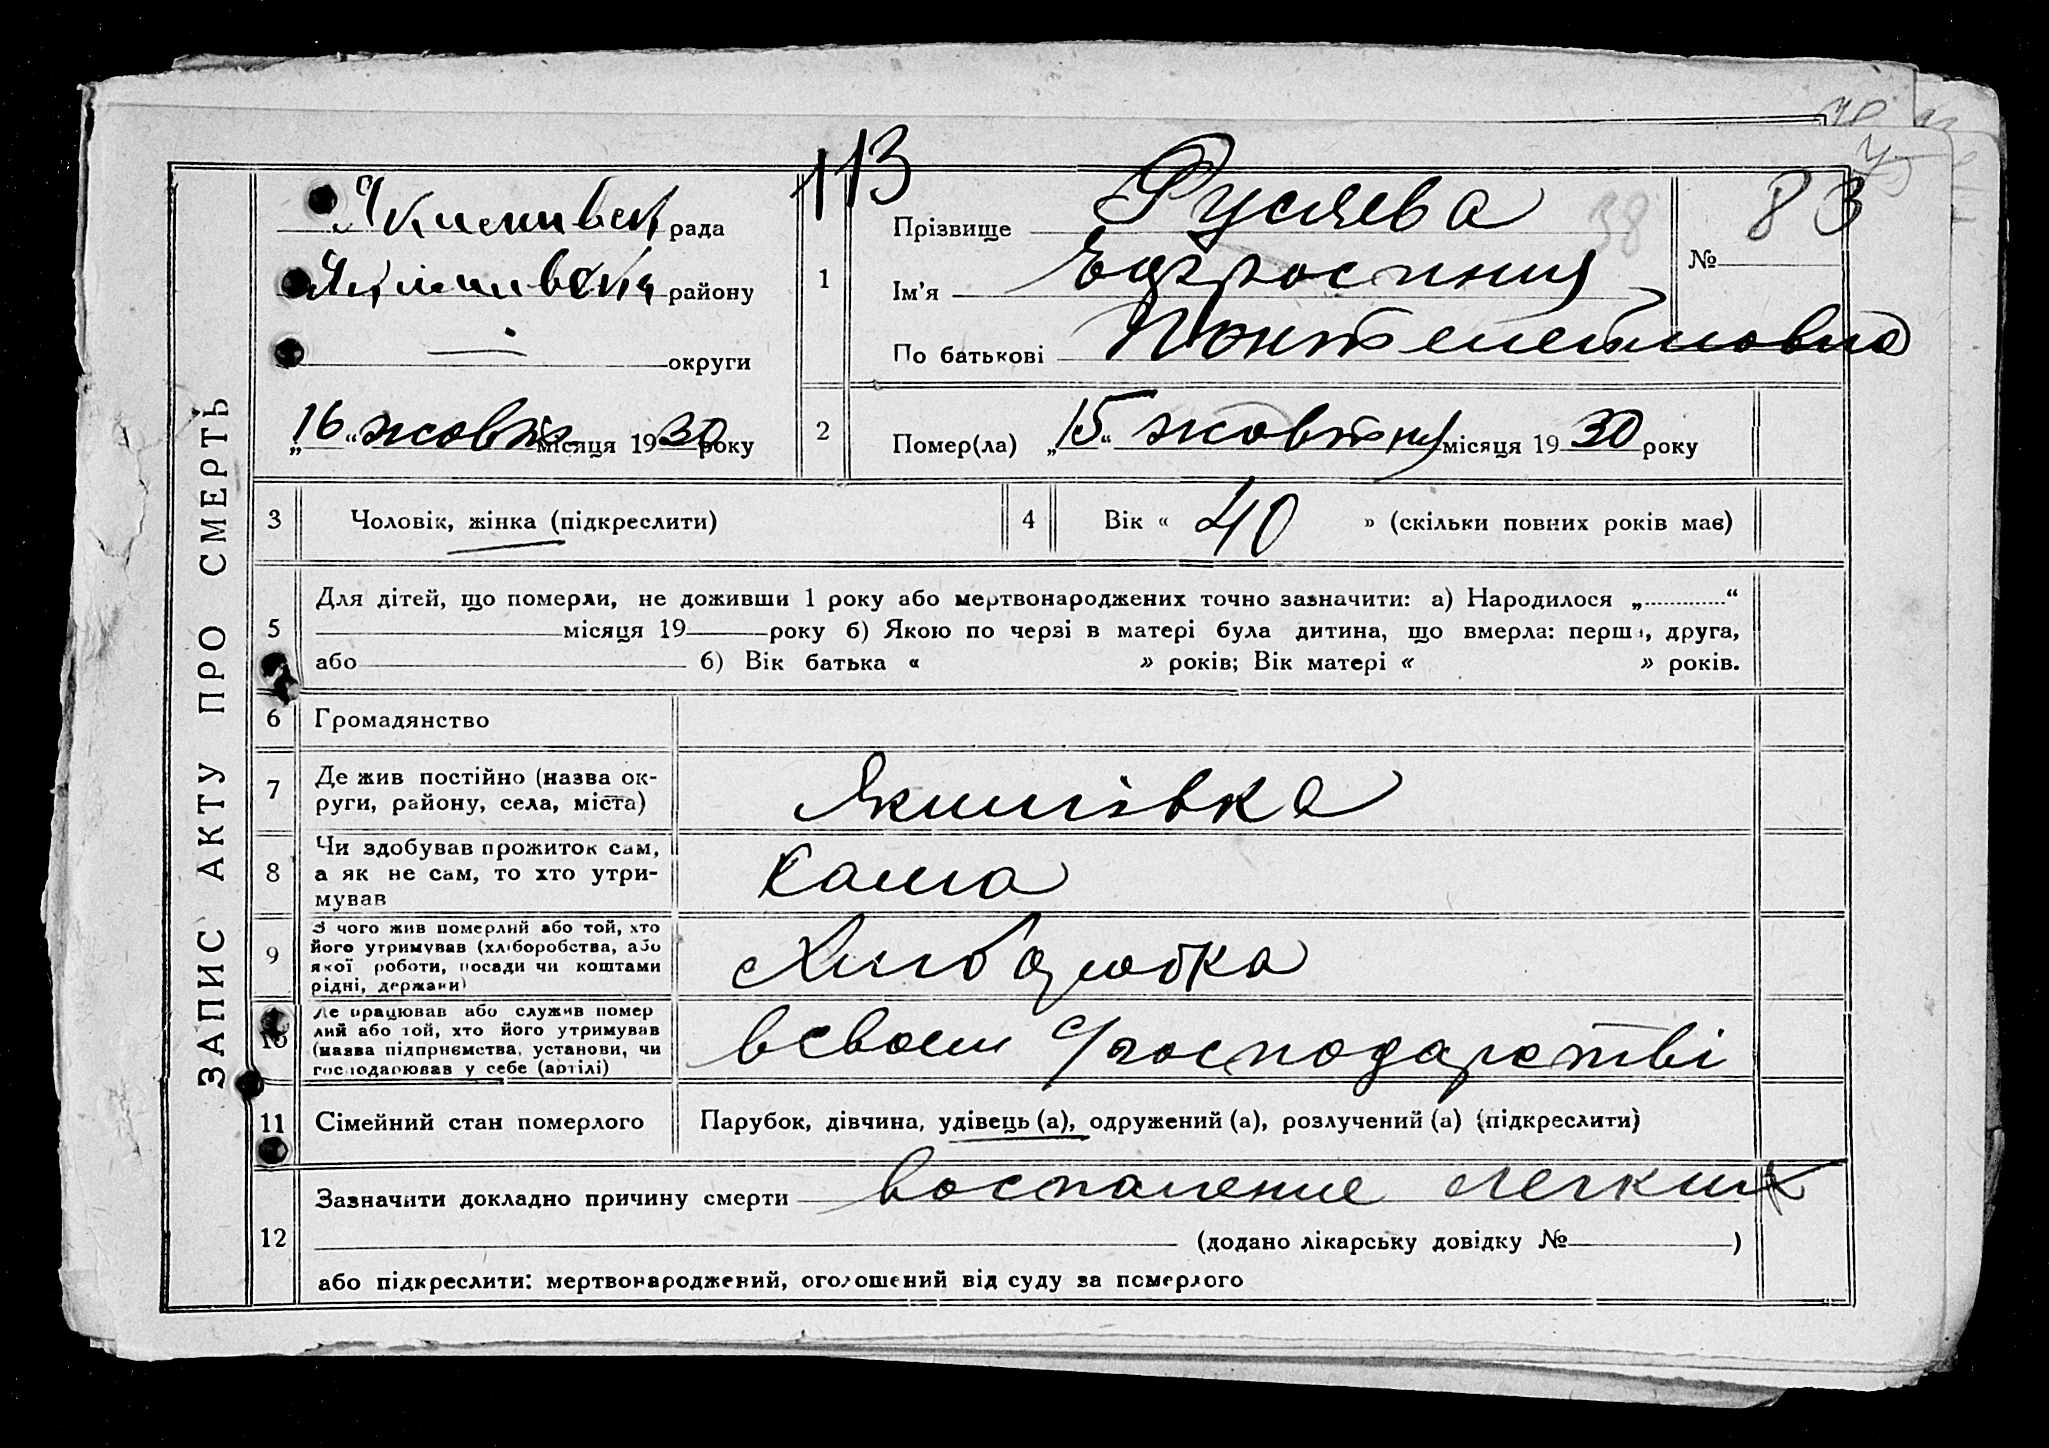 113
ЗАПИС АКТУ ПРО СМЕРТЬ
Якимивск рада
Якимивский району
— округи
1
Прізвище Русяева
38
№ 83
Ім'я Ефросиния
По батькові Пантелеймоновна
„16“ жовтн місяця 1930 року
2
Помер(ла) „15“ жовтня місяця 1930 року
3 Чоловік, жінка (підкреслити)
4 Вік « 40 » (скільки повних років має)
5
Для дітей, що померли, не доживши 1 року або мертвонароджених точно зазначити: а) Народилося „............“
місяця 19 року б) Якою по черзі в матері була дитина, що вмерла: перша, друга,
або б) Вік батька « » років; Вік матері « » років.
6 Громадянство
7 Де жив постійно (назва ок-
руги, району, села, міста)
Якимівка
8 Чи здобував прожиток сам,
а як не сам, то хто утри-
мував
Сама
9 З чого жив померлий або той, хто
його утримував (хліборобства, або
якої роботи, посади чи коштами
рідні, держави)
Хлибаробка
10 Де працював або служив помер
лий або той, хто його утримував
(назва підприємства, установи, чи
господарював у себе (артілі)
всвоем господарстві
11 Сімейний стан померлого
Парубок, дівчина, удівець (а), одружений (а), розлучений (а) (підкреслити)
12
Зазначити докладно причину смерти воспаление легких
(додано лікарську довідку № )
або підкреслити: мертвонароджений, оголошений від суду за померлого